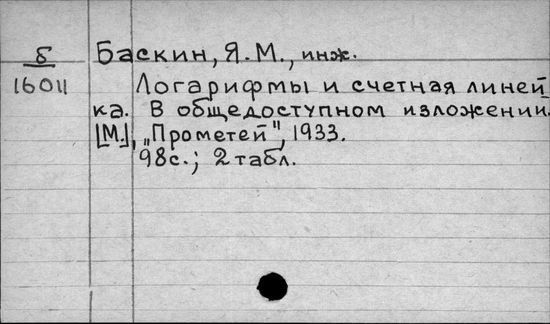 Б
16011
Баскин, Я.М., инж.
Логарифмы и счетная линей
ка. В общедоступном изложении.
[М.], „Прометей", 1933.
98с.; 2 табл.